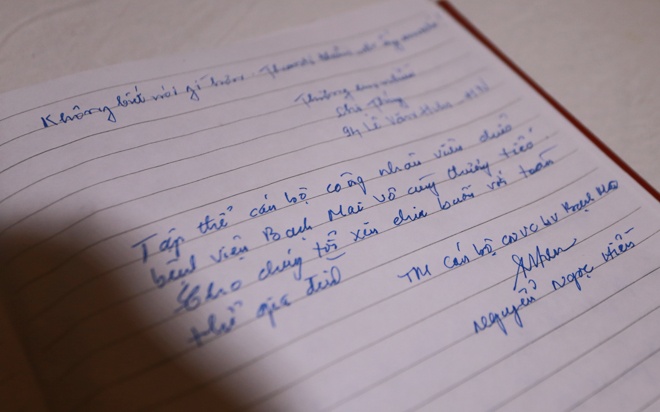 Không biết nói gì hơn. Thương
Chú Thắng
94 Lê Văn Hưu - HN
Tập thể cán bộ công nhân viên chức
bệnh viện Bạch Mai vô cùng thương tiếc
Cho chúng tôi xin chia buồn với toàn
thể gia đình
TM cán bộ CNVC BV Bạch Mai
Nguyễn Ngọc Hiền